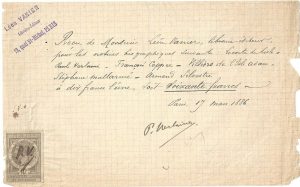 Léon VANIER
19, QUAI St-MICHEL, PARIS
Reçu de Monsieur Léon Vanier, libraire-éditeur
pour les notices biographiques suivantes Leconte de Lisle
Paul Verlaine - François Coppée - Villiers de l'Isle Adam
Stéphane Mallarmé - Armand Silvestre
à dix francs l'une, soit Soixante francs
Paris, 17 mars 1886
P. Verlaine